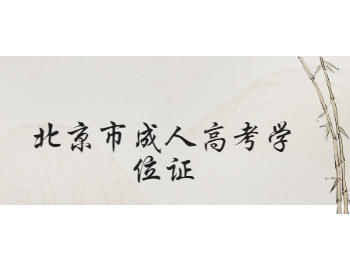 北京市成人高考学
位证